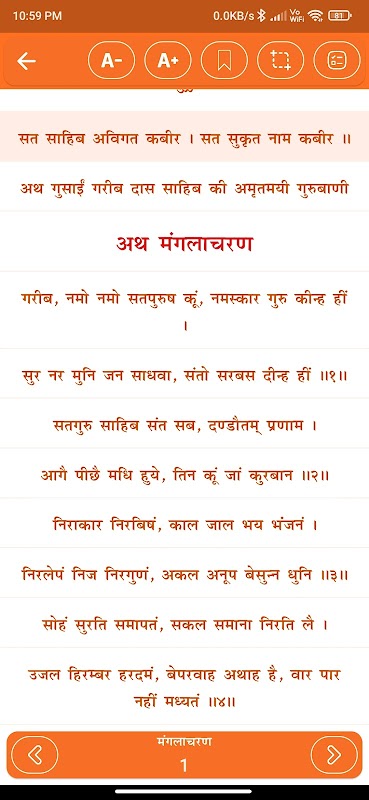 10:59 PM
0.0KB/s Vo WiFi 81
A- A+
सत साहिब अविगत कबीर । सत सुकृत नाम कबीर ॥
अथ गुसाईं गरीब दास साहिब की अमृतमयी गुरुबाणी
अथ मंगलाचरण
गरीब, नमो नमो सतपुरुष कूं, नमस्कार गुरु कीन्ह हीं
।
सुर नर मुनि जन साधवा, संतो सरबस दीन्ह हीं ॥१॥
सतगुरु साहिब संत सब, दण्डौतम् प्रणाम ।
आगै पीछै मधि हुये, तिन कूं जां कुरबान ॥२॥
निराकार निरबिषं, काल जाल भय भंजनं ।
निरलेपं निज निरगुणं, अकल अनूप बेसुन्न धुनि ॥३॥
सोहं सुरति समापतं, सकल समाना निरति लै ।
उजल हिरम्बर हरदमं, बेपरवाह अथाह है, वार पार
नहीं मध्यतं ॥४॥
मंगलाचरण
1